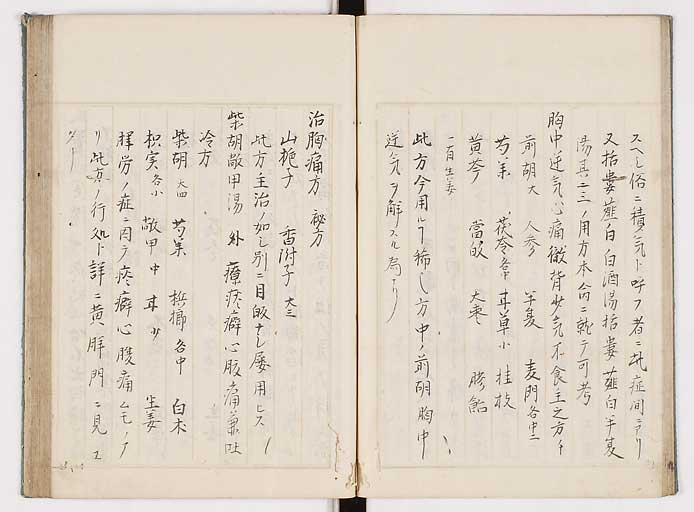 スヘシ俗ニ積気ト呼フ者ニ此症間ニアリ
又括蔞薤白白酒湯括蔞薤白半夏
湯其二三ノ用方本侖ニ就テ可考
胸中逆気心痛徹背少気不食主之方十
前胡大 人参 半夏 麦門各中二
芍薬 茯苓各中 甘草小 桂枝
黄芩 當皈 大棗 膠飴
二百生姜
此方今用ルヿ稀シ方中ノ前胡胸中
逆気ヲ解スル為ナリ
治胸痛方 秘方
山梔子 香附子大三
此方主治ノ如シ別ニ目的ナシ屡用ヒス
柴胡鼈甲湯 外 療痃癖心腹痛兼吐
冷方
柴胡大四 芍薬 檳榔各中 白朮
枳実各小 鼈甲中 甘少 生姜
脾労ノ症ニ因テ痃癖心腹痛
リ此真ノ行処ト詳ニ黄胖門ニ見エ
タリ